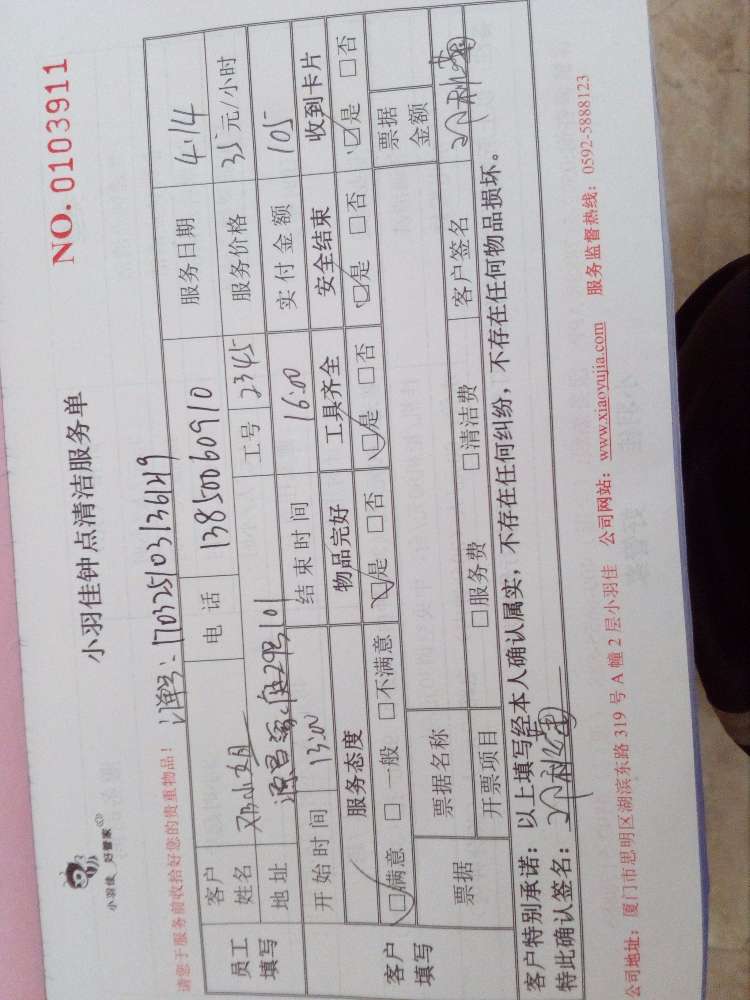 小羽佳 好管家
小羽佳钟点清洁服务单
NO. 0103911
请您于服务前收拾好您的贵重物品!
单号:170325103136149
员工填写
客户姓名 邓小姐 电话 13850060910 服务日期 4.14
地址 源昌 293 101 工号 2345 服务价格 35元/小时
开始时间 13:00 结束时间 16:00 实付金额 105
客户填写
服务态度 物品完好 工具齐全 安全结束 收到卡片
☑满意 □一般 □不满意 ☑是 □否 ☑是 □否 ☑是 □否 ☑是 □否
票据 票据名称 票据金额
开票项目 □服务费 □清洁费 客户签名
客户特别承诺:以上填写经本人确认属实,不存在任何纠纷,不存在任何物品损坏。
特此确认签名:
公司地址:厦门市思明区湖滨东路319号A幢2层小羽佳 公司网站:www.xiaoyujia.com 服务监督热线:0592-5888123